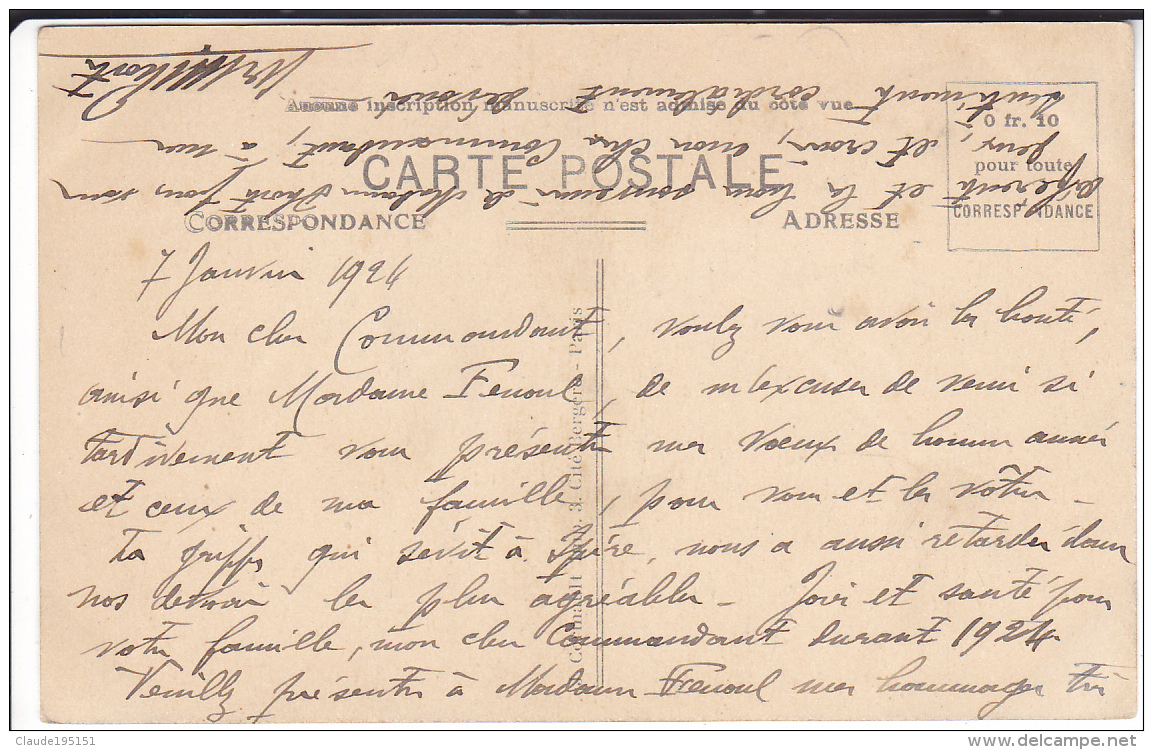 Aucune inscription manuscrite n'est admise du côté vue
CARTE POSTALE
CORRESPONDANCE
ADRESSE
0 fr. 10
pour toute
CORRESPONDANCE
3, Cité Bergère - Paris
7 Janvier 1924
Mon cher Commandant, voulez vous avoir la bonté,
ainsi que Madame Fenoul, de m'excuser de venir si
tardivement vous présenter mes voeux de bonne année
et ceux de ma famille, pour vous et la vôtre -
La grippe qui sévit à, nous a aussi retardé dans
nos devoirs les plus agréables - Joie et santé pour
votre famille, mon cher Commandant durant 1924
Veuillez présenter à Madame Fenoul mes hommages très
et le bon souvenir de Madame pour vous
deux, et croire, mon cher Commandant, à mes
sentiments cordialement
Claude195151
www.delcampe.net